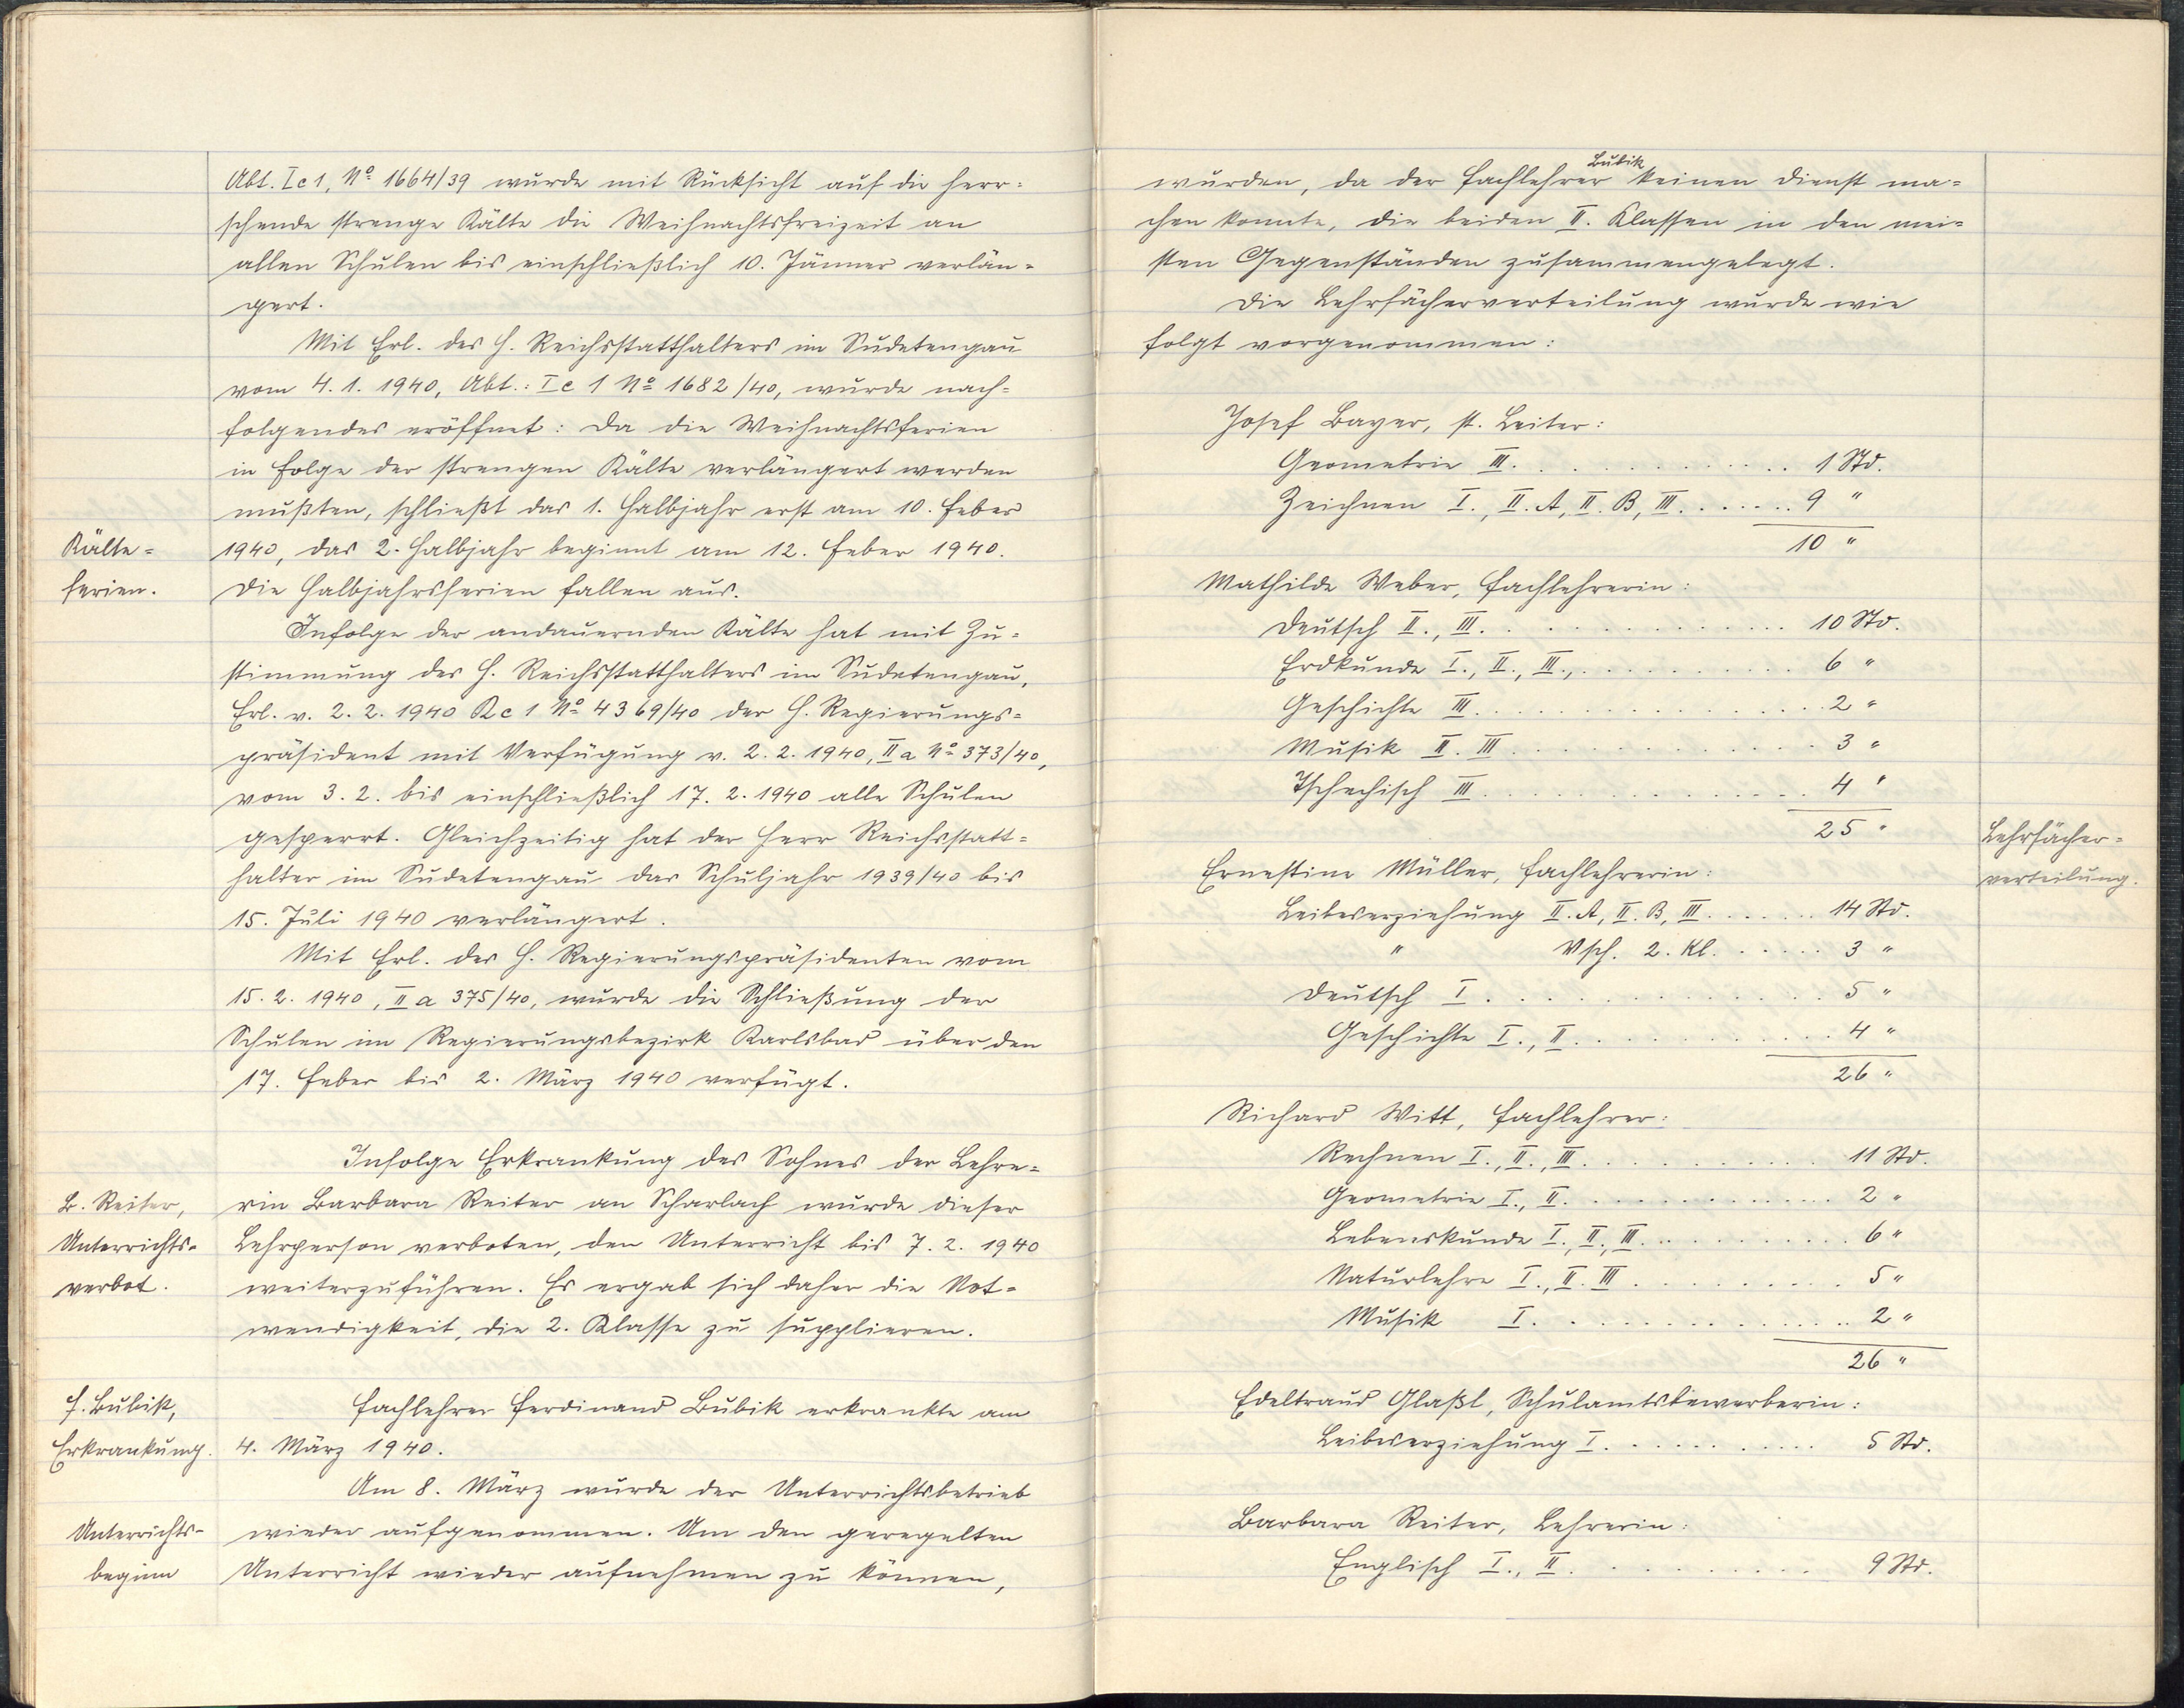 Abt. I c 1, No 1664/39 wurde mit Rücksicht auf die herr=
schende strenge Kälte die Weihnachtsfreizeit an
allen Schulen bis einschließlich 10. Jänner verlän=
gert.
Mit Erl. des H. Reichsstatthalters im Sudetengau
vom 4. 1. 1940, Abt.: I c 1 No 1682/40, wurde nach=
folgendes eröffnet: Da die Weihnachtsferien
in Folge der strengen Kälte verlängert werden
mußten, schließt das 1. Halbjahr erst am 10. Feber
Kälte=
ferien.
1940, das 2. Halbjahr beginnt am 12. Feber 1940.
Die Halbjahrsferien fallen aus.
Infolge der andauernden Kälte hat mit Zu=
stimmung des H. Reichsstatthalters im Sudetengau,
Erl. v. 2. 2. 1940 R c 1 No 4369/40 der H. Regierungs=
präsident mit Verfügung v. 2. 2. 1940, II a No 373/40,
vom 3. 2. bis einschließlich 17. 2. 1940 alle Schulen
gesperrt. Gleichzeitig hat der Herr Reichsstatt=
halter im Sudetengau das Schuljahr 1939/40 bis
15. Juli 1940 verlängert.
Mit Erl. des H. Regierungspräsidenten vom
15. 2. 1940, II a 375/40, wurde die Schließung der
Schulen im Regierungsbezirk Karlsbad über den
17. Feber bis 2. März 1940 verfügt.
Infolge Erkrankung des Sohnes der Lehre=
B. Reiter,
Unterrichts=
verbot.
rin Barbara Reiter an Scharlach wurde dieser
Lehrperson verboten, den Unterricht bis 7. 2. 1940
weiterzuführen. Es ergab sich daher die Not=
wendigkeit, die 2. Klasse zu supplieren.
F. Bubik,
Erkrankung.
Fachlehrer Ferdinand Bubik erkrankte am
4. März 1940.
Am 8. März wurde der Unterrichtsbetrieb
Unterrichts-
beginn
wieder aufgenommen. Um den geregelten
Unterricht wieder aufnehmen zu können,
Bubik
wurden, da der Fachlehrer keinen Dienst ma=
chen konnte, die beiden II. Klassen in den mei=
sten Gegenständen zusammengelegt.
Die Lehrfächerverteilung wurde wie
folgt vorgenommen:
Josef Bayer, st. Leiter:
Geometrie III. . . . . . . . . . . . . 1 Std.
Zeichnen I., II. A, II. B, III. . . . . . . 9 "
10 "
Mathilde Weber, Fachlehrerin:
Deutsch II., III. . . . . . . . . . . . . 10 Std.
Erdkunde I., II., III., . . . . . . . . . . 6 "
Geschichte III. . . . . . . . . . . . . . . 2 "
Musik II. III . . . . . . . . . . . . . 3 "
Tschechisch III . . . . . . . . . . . . . 4 "
25 "
Lehrfächer=
verteilung.
Ernestine Müller, Fachlehrerin:
Leibeserziehung II. A, II. B, III. . . . . . 14 Std.
" Vsch. 2. Kl. . . . . . 3 "
Deutsch I . . . . . . . . . . . . . . . 5 "
Geschichte I., II. . . . . . . . . . . . 4 "
26 "
Richard Witt, Fachlehrer:
Rechnen I., II., III. . . . . . . . . . . . 11 Std.
Geometrie I., II. . . . . . . . . . . . . 2 "
Lebenskunde I., II., III. . . . . . . . . . . 6 "
Naturlehre I., II. III . . . . . . . . . 5 "
Musik I. . . . . . . . . . . . . . . 2 "
26 "
Edeltraud Glaßl, Schulamtsbewerberin:
Leibeserziehung I. . . . . . . . . . . 5 Std.
Barbara Reiter, Lehrerin:
Englisch I., II. . . . . . . . . . . 9 Std.